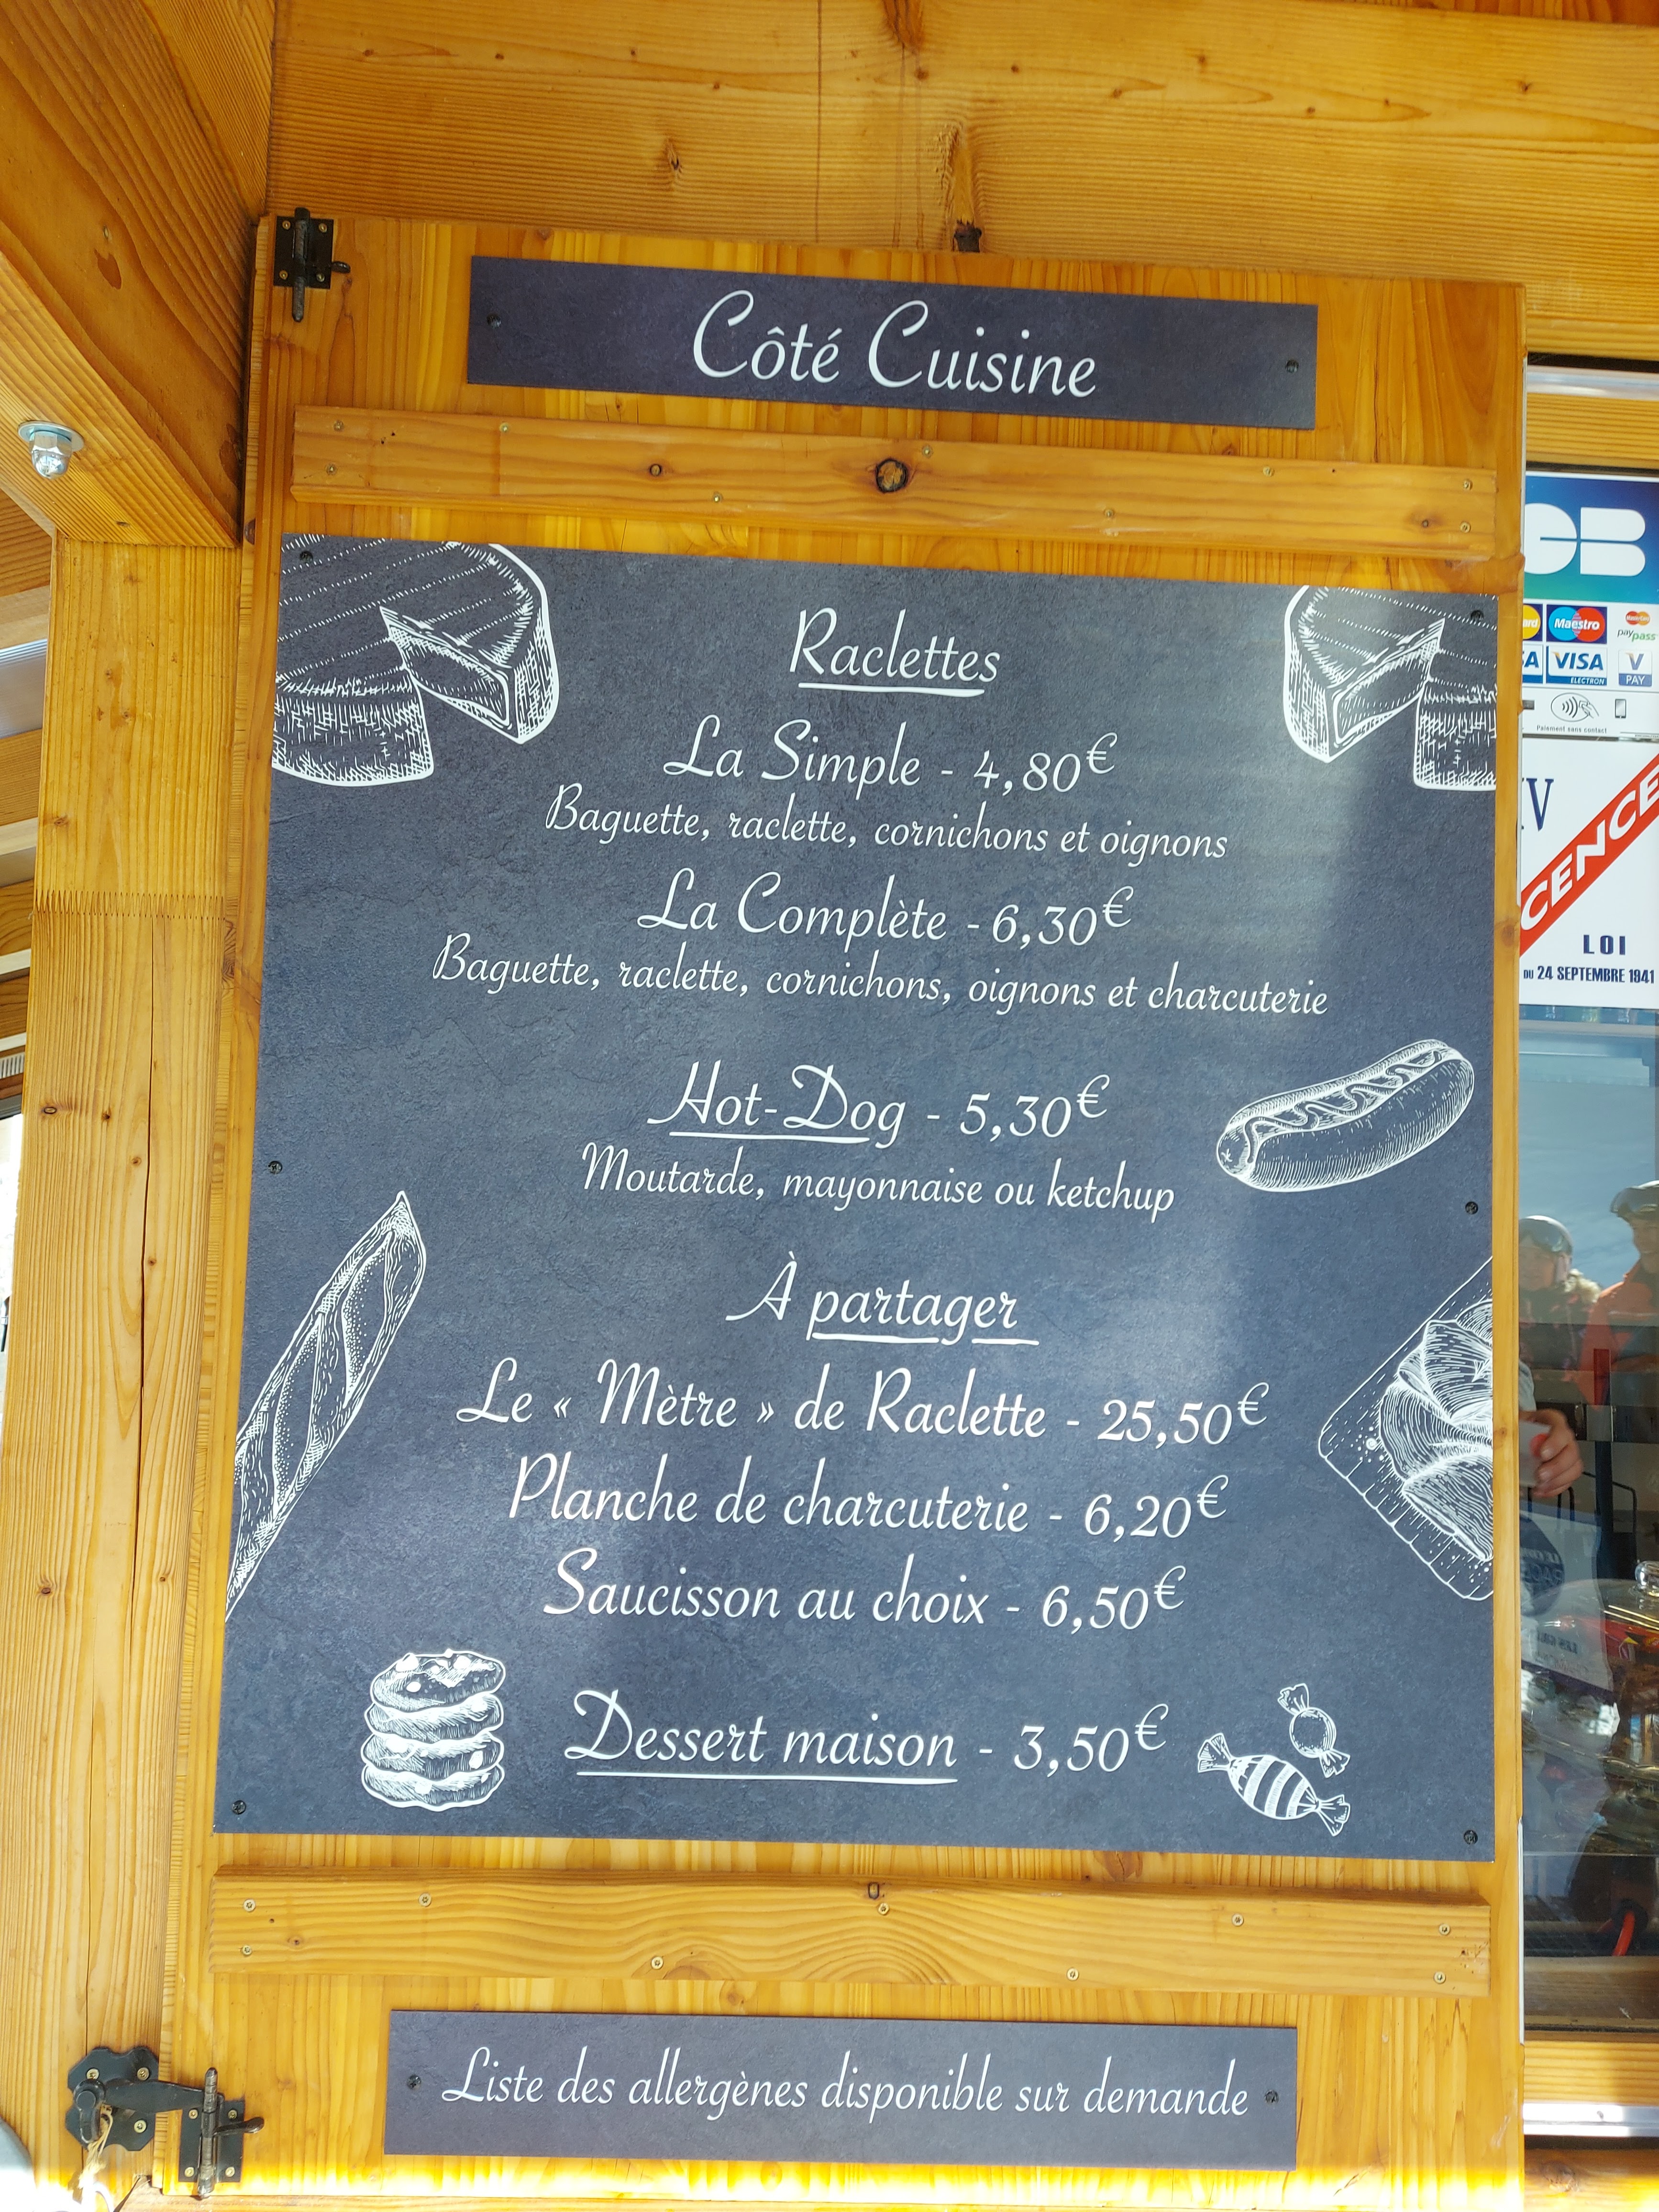 Côté Cuisine
Raclettes
La Simple - 4,80€
Baguette, raclette, cornichons et oignons
La Complète - 6,30€
Baguette, raclette, cornichons, oignons et charcuterie
Hot-Dog - 5,30€
Moutarde, mayonnaise ou ketchup
À partager
Le « Mètre » de Raclette - 25,50€
Planche de charcuterie - 6,20€
Saucisson au choix - 6,50€
Dessert maison - 3,50€
Liste des allergènes disponible sur demande
CB
Maestro
paypass
VISA
ELECTRON
V PAY
Paiement sans contact
IV
CENCE
LOI
DU 24 SEPTEMBRE 1941